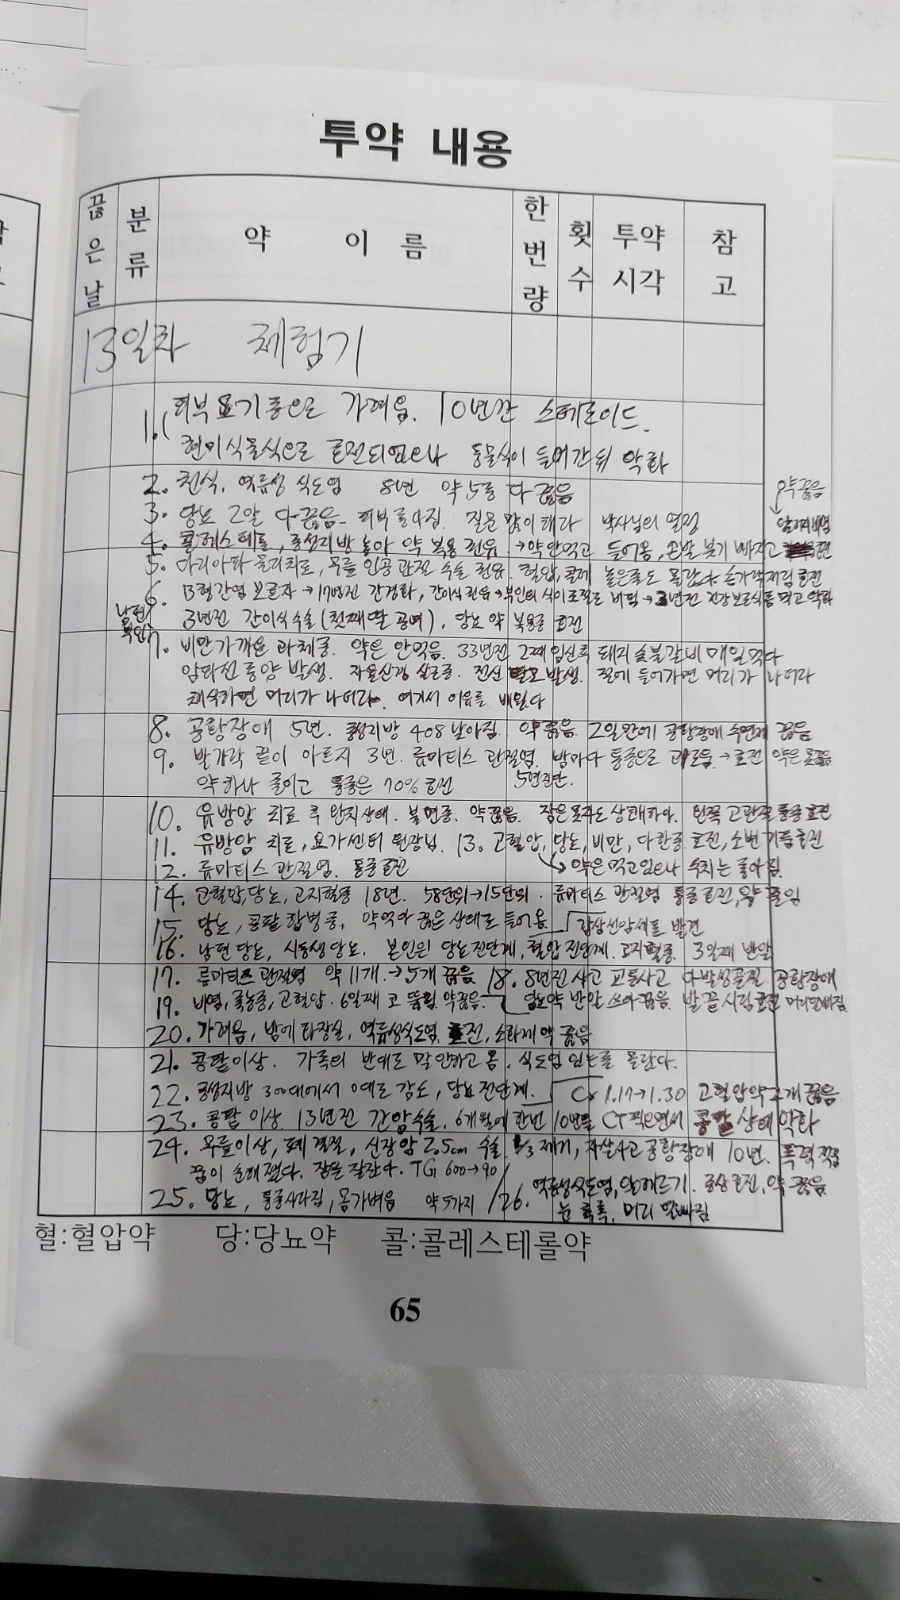 투약 내용
끊은날 분류 약 이름 한번량 횟수 투약시각 참고
13일차 체험기
1. 피부묘기증으로 가려움. 10년간 스테로이드.
현미식물식으로 호전되었으나 동물식이 들어간 뒤 악화
2. 천식, 역류성 식도염 8년 약 5종 다 끊음
약 끊음
3. 당뇨 2알 다 끊음. 피부 좋아짐. 질문 많이 해다 박사님의 열정
알레르기비염
4. 콜레스테롤, 중성지방 높아 약 복용 권유 →약 안먹고 들어옴, 손발 붓기 빠지고 호전
5. 마리아와 물리치료, 무릎 인공관절 수술 권유. 혈압, 콜레 높은줄도 몰랐다 손가락저림 호전
6. B형간염 보균자 → 17년전 간경화, 간이식 권유 → 부인의 식이조절로 버팀 → 3년전 건강보조식품 먹고 악화
남편
부인7.
3년전 간이식수술 (첫째딸 공여). 당뇨 약 복용중 호전
비만가까운 과체중. 약은 안먹음. 33년전 2째 임신때 돼지숯불갈비 매일 먹다
임파선 종양 발생. 자율신경 실조증. 전신 발생. 절에 들어가면 머리가 나더라
채식하면 머리가 나더라. 여기서 이유를 배웠다
8. 공황장애 5년. 중성지방 408 낮아짐. 약 끊음. 2일만에 공황장애 수면제 끊음
9. 발가락 끝이 아픈지 3년. 류마티스 관절염. 밤마다 통증으로 괴로움. → 호전 약은 못끊음
약 하나 줄이고 통증은 70% 호전 5년진단.
10. 유방암 치료 후 완치상태. 불면증. 약끊음. 잠은 못자도 상쾌하다. 왼쪽 고관절 통증 호전
11. 유방암 치료, 요가센터 원장님. 13. 고혈압, 당뇨, 비만, 다한증 호전, 소변 거품호전
12. 류마티스 관절염. 통증호전 → 약은 먹고있으나 수치는 좋아짐.
14. 고혈압, 당뇨, 고지혈증 18년. 58단위→15단위. 류마티스 관절염 통증호전, 약 줄임
15. 당뇨, 콩팥 합병증, 약 먹다 끊은 상태로 들어옴 갑상선암세포 발견
16. 남편 당뇨, 시동생 당뇨. 본인은 당뇨 전단계, 혈압 전단계. 고지혈증. 3일째 반알
17. 류마티스 관절염 약 11개.→5개 끊음 18. 8년전 사고 교통사고 다발성골절 공황장애
19. 비염, 축농증, 고혈압. 6일째 코 뚫림. 약끊음. 당뇨약 반알 쓰다 끊음. 발끝 시림 호전 머리안빠짐
20. 가려움, 밤에 화장실, 역류성식도염 호전, 소화제 약 끊음
21. 콩팥이상. 가족의 반대로 말 안하고 옴. 식도염 있는줄 몰랐다.
22. 중성지방 300대에서 0대로 감소, 당뇨 전단계. Cr 1.17→1.30 고혈압약 2개 끊음
23. 콩팥 이상 13년전 간암수술. 6개월에 한번 10년동 CT 찍으면서 콩팥 상태 악화
24. 무릎이상, 폐 결절, 신장암 2.5cm 수술 1/3 제거, 자살사고 공황장애 10년. 폭력적
꿈이 순해졌다. 잠을 잘잔다. TG 600→90
25. 당뇨, 통증사라짐, 몸가벼움 약 5가지 26. 역류성식도염, 알레르기. 증상 호전, 약 끊음
눈 촉촉, 머리 안빠짐
혈:혈압약 당:당뇨약 콜:콜레스테롤약
65